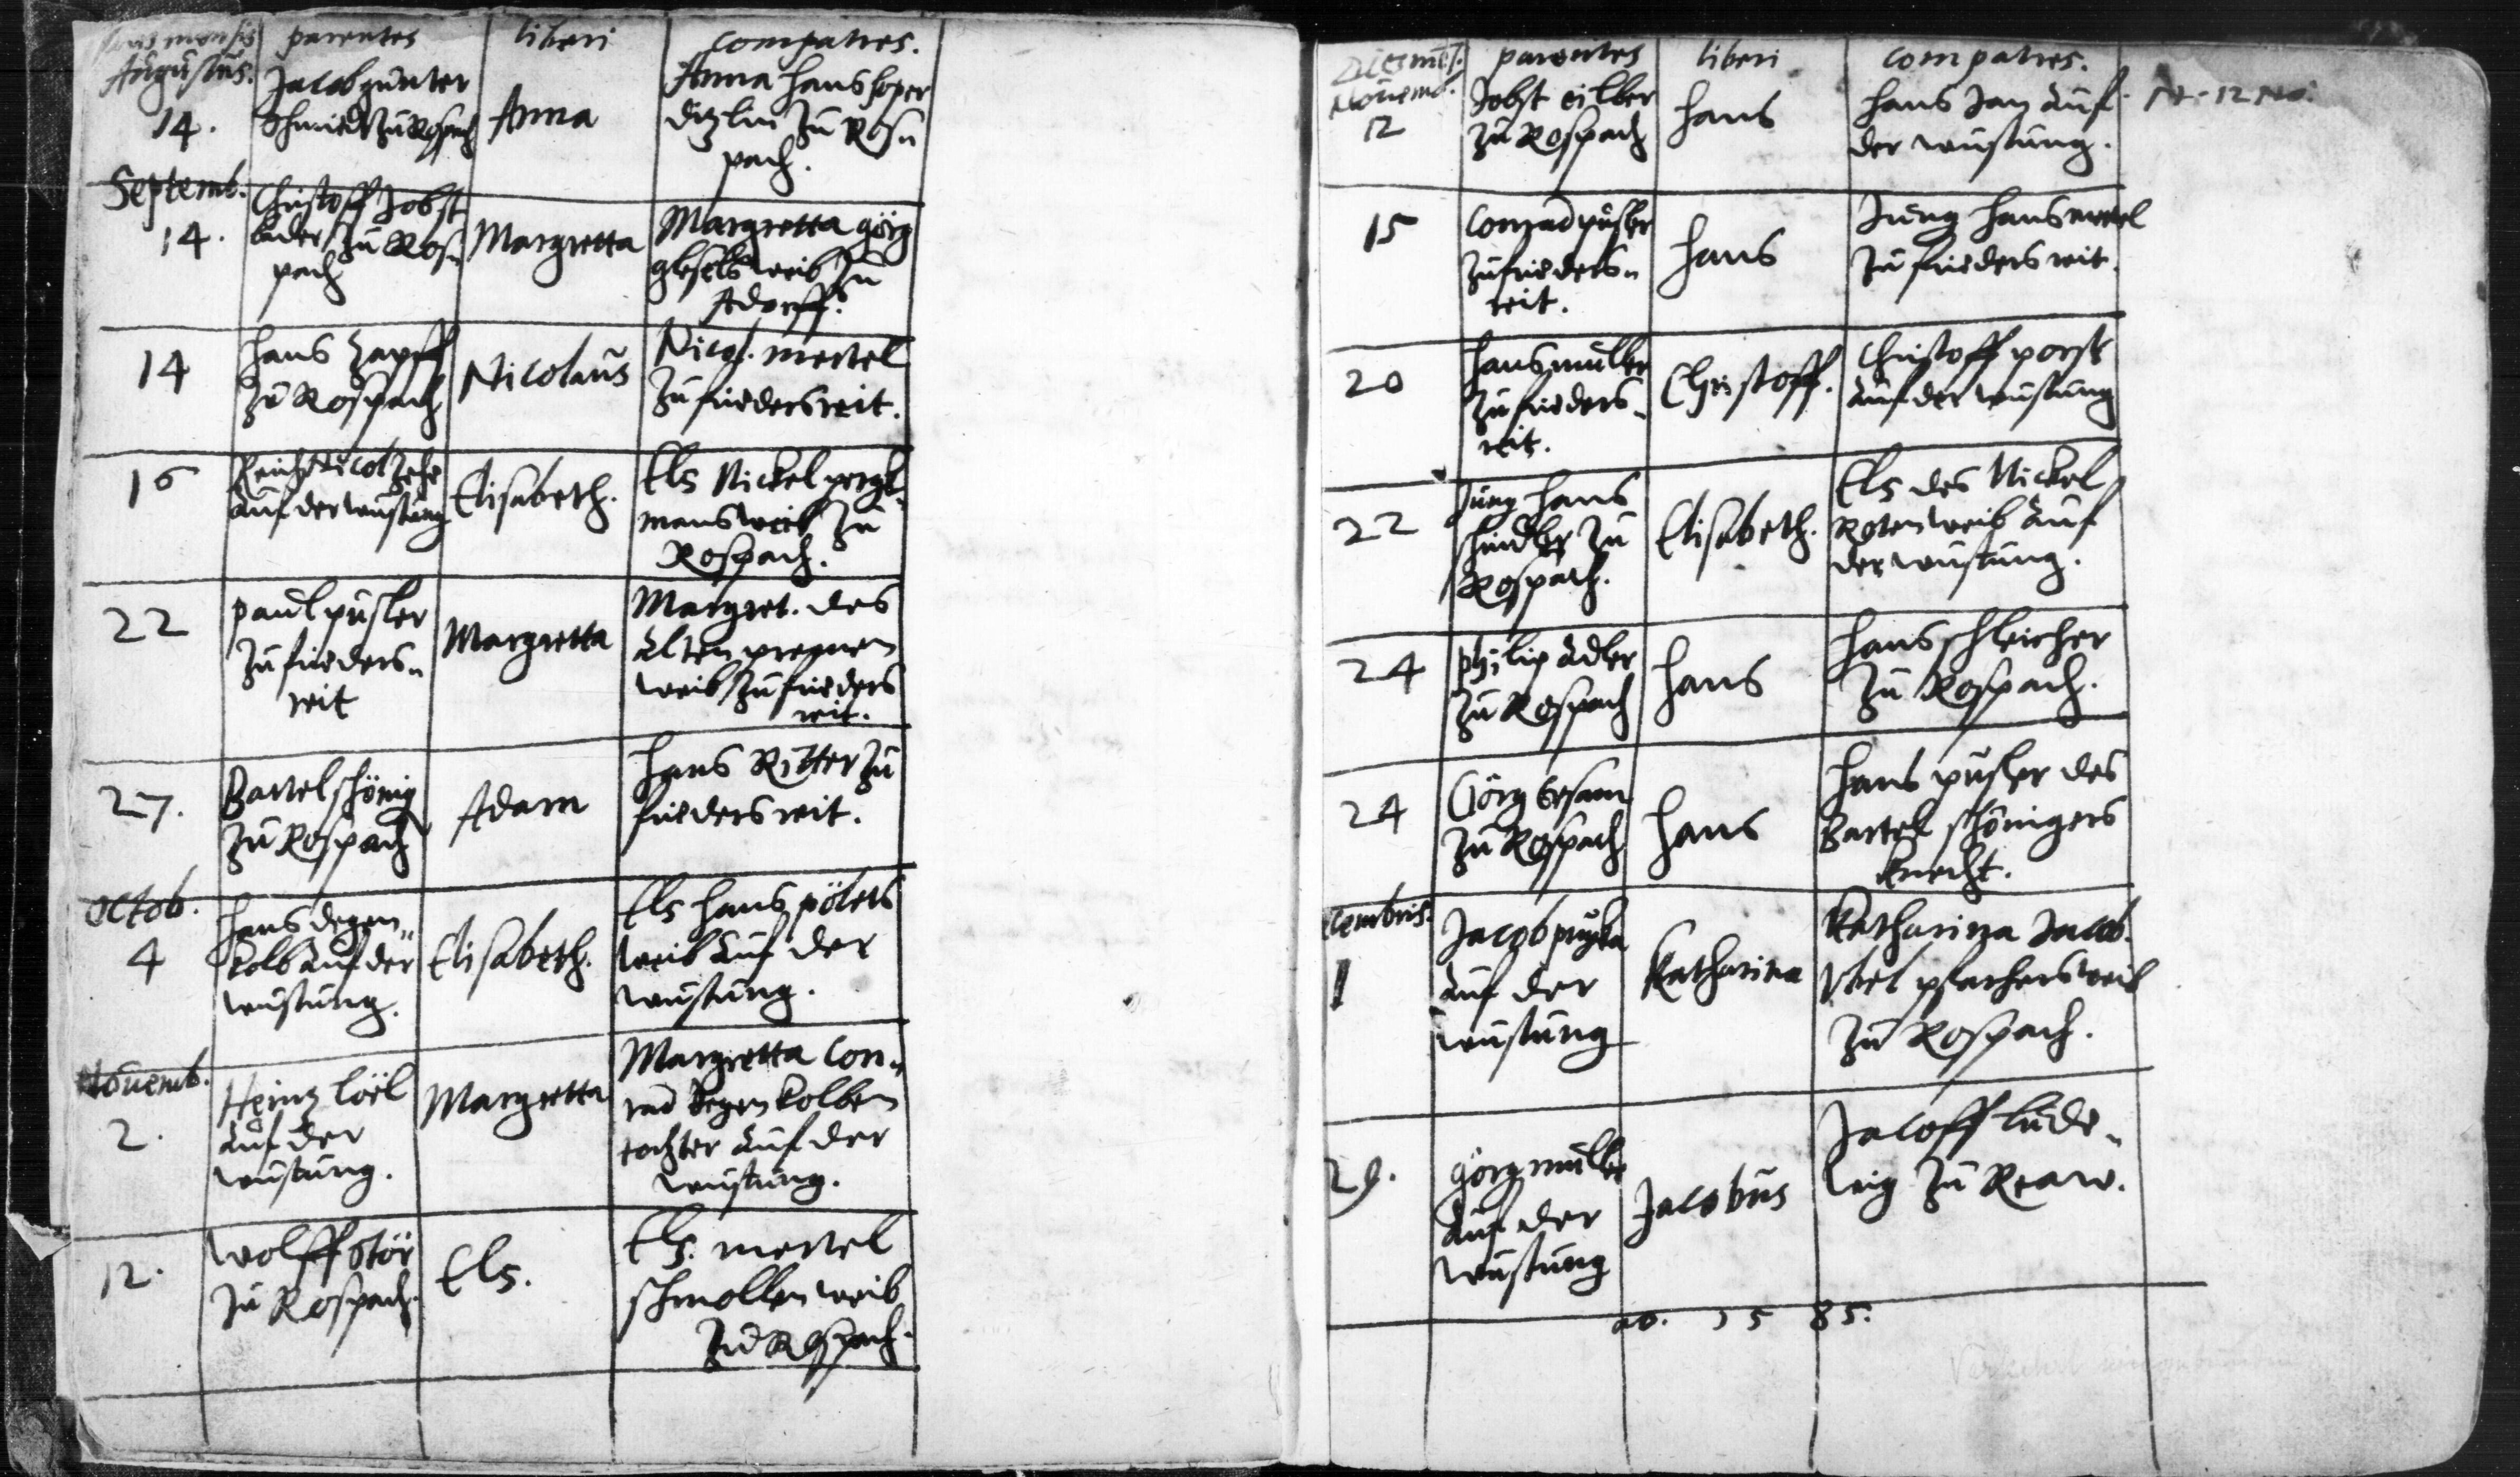 dies mensis parentes liberi compatres.
Augustus.
14.
Jacob günter
Schmidt zu Rospach
Anna
Anna Hans
zu Ros„
pach.
Septemb.
14.
Christoff Jobst
bader zu Ros„
pach
Margretta
Margretta görg
weib zu
Adorff.
14
Hans Zapff
zu Rospach
Nicolaus
Nicol. mertel
zu friedersreit.
16
Nicol
auf der wustung
Elisabeth.
Els Nickel
mans weib zu
Rospach.
22
paul pusler
zu frieders„
reit
Margretta
Margret. des
alten
weib zu frieders
reit.
27.
Bartel schönig
zu Rospach
Adam
Hans Ritter zu
friedersreit.
Octob.
4
Hans degen„
kolb auf der
wustung.
Elisabeth.
Els Hans pölers
weib auf der
wustung.
Nouemb.
2.
Heinz löel
auf der
wustung.
Margretta
Margretta Con„
rad degenkolben
tochter auf der
wustung.
12.
Wolff Stör
zu Rospach.
Els.
Els. mertel
schmollen weib
zu Rospach.
parentes liberi compatres.
Nouemb.
12
Jobst eilber
zu Rospach
Hans
Hans Jan auf
der wustung.
15
Conrad pusler
zu frieders„
reit.
Hans
Jung Hans mertel
zu friedersreit.
20
Hans muller
zu frieders„
reit.
Christoff.
Christoff porst
auf der wustung
22
Jung Hans
schindler zu
Rospach.
Elisabeth.
Els des Nickel
Roten weib auf
der wustung.
24
philip adler
zu Rospach
Hans
Hans schleicher
zu Rospach.
24
Görg
zu Rospach
Hans
Hans pusler des
Bartel schönigers
knecht.
cembris.
1
Jacob
auf der
wustung
Katharina
Katharina Jacob.
weib
zu Rospach.
29.
görg muller
auf der
wustung
Jacobus
Jacoff lude„
wig zu Reaw.
ao. 15 85.